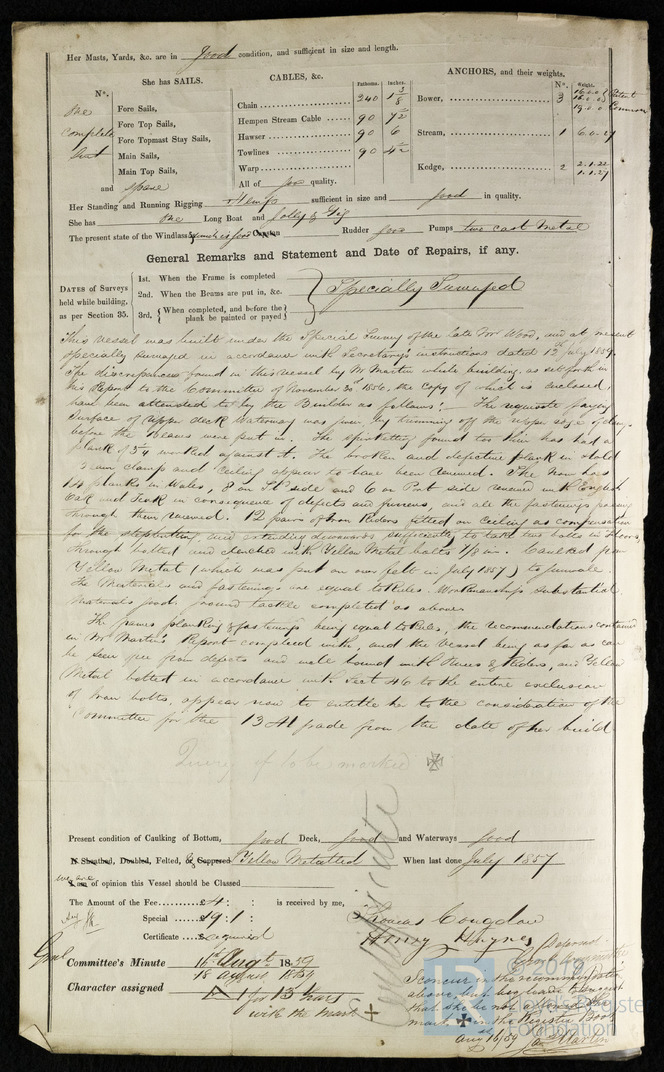 Her Masts, Yards, &c. are in good condition, and sufficient in size and length.
She has SAILS.
CABLES, &c.
Fathoms.
Inches.
ANCHORS, and their weights.
No.
Weight.
No.
One
complete
suit
and spare
Fore Sails,
Fore Top Sails,
Fore Topmast Stay Sails,
Main Sails,
Main Top Sails,
Chain 240 1 3/8
Hempen Stream Cable 90 7 1/2
Hawser 90 6
Towlines 90 4 1/2
Warp
All of good quality.
Bower, 3
Patent
19.0.0 Common
Stream, 1 6.0.27
Kedge, 2 2.1.22
1.1.27
Her Standing and Running Rigging Hemp sufficient in size and good in quality.
She has One Long Boat and Jolly & Gig
The present state of the Windlass Capstan Rudder good Pumps two cast Metal
General Remarks and Statement and Date of Repairs, if any.
DATES of Surveys
held while building,
as per Section 35.
1st. When the Frame is completed
2nd. When the Beams are put in, &c.
3rd. When completed, and before the
plank be painted or payed
Specially Surveyed
This vessel was built under the Special Survey of the late Mr Wood, and at present
specially surveyed in accordance with Secretary's instructions dated 12th July 1859.
The discrepancies found in this vessel by Mr Martin while building, as set forth in
his Report to the Committee of November 20th 1856, the copy of which is enclosed,
have been attended to by the Builder as follows:— The requisite faying
surface of upper deck waterway was given by trimming off the upper edge of clamp
before the Beams were put in. The spirketting found too thin has had a
plank of 5/4 worked against it. The broken and defective plank in Hold
Beam clamp and ceiling appear to have been renewed. She now has
14 planks in Wales, 8 on St'd side and 6 on Port side renewed with English
Oak and Teak in consequence of defects and and all the fastenings passing
through them renewed. 12 pairs of Iron Riders fitted on ceiling as compensation
for the and extending downwards sufficiently to take two bolts in floors,
through bolted and clenched with Yellow Metal bolts 1 1/8 in. Caulked from
Yellow Metal (which was put on over felt in July 1857) to gunwale.
The Materials and fastenings are equal to Rules. Workmanship substantial
Materials good, ground tackle completed as above.
The frames planking & fastenings being equal to Rules, the recommendations contained
in Mr Martin's Report complied with, and the vessel being as far as can
be seen free from defects and well bound with Knees & Riders, and Yellow
Metal bolted in accordance with Sect 46 to the entire exclusion
of Iron bolts, appear now to entitle her to the consideration of the
Committee for the 13 A1 grade from the date of her build
Query if to be marked ✠
Present condition of Caulking of Bottom, good Deck, good and Waterways good
Is Sheathed, Doubled, Felted, & Coppered Yellow Metalled When last done July 1857
we are
I am of opinion this Vessel should be Classed
The Amount of the Fee £4 : : is received by me,
Special £9 : 1 :
Certificate required
Thomas Congdon
Henry Haynes
Certificate
Committee's Minute 16th Augt. 1859
18 August 1859
Character assigned A 1 for 13 Years
with the mark ✠
I concur in the recommendation
above, but beg leave to suggest
that she be not allowed the
mark ✠ in the Register Book
Aug 16/59 Jas Martin
© 2019
Lloyd's Register
Foundation
LR